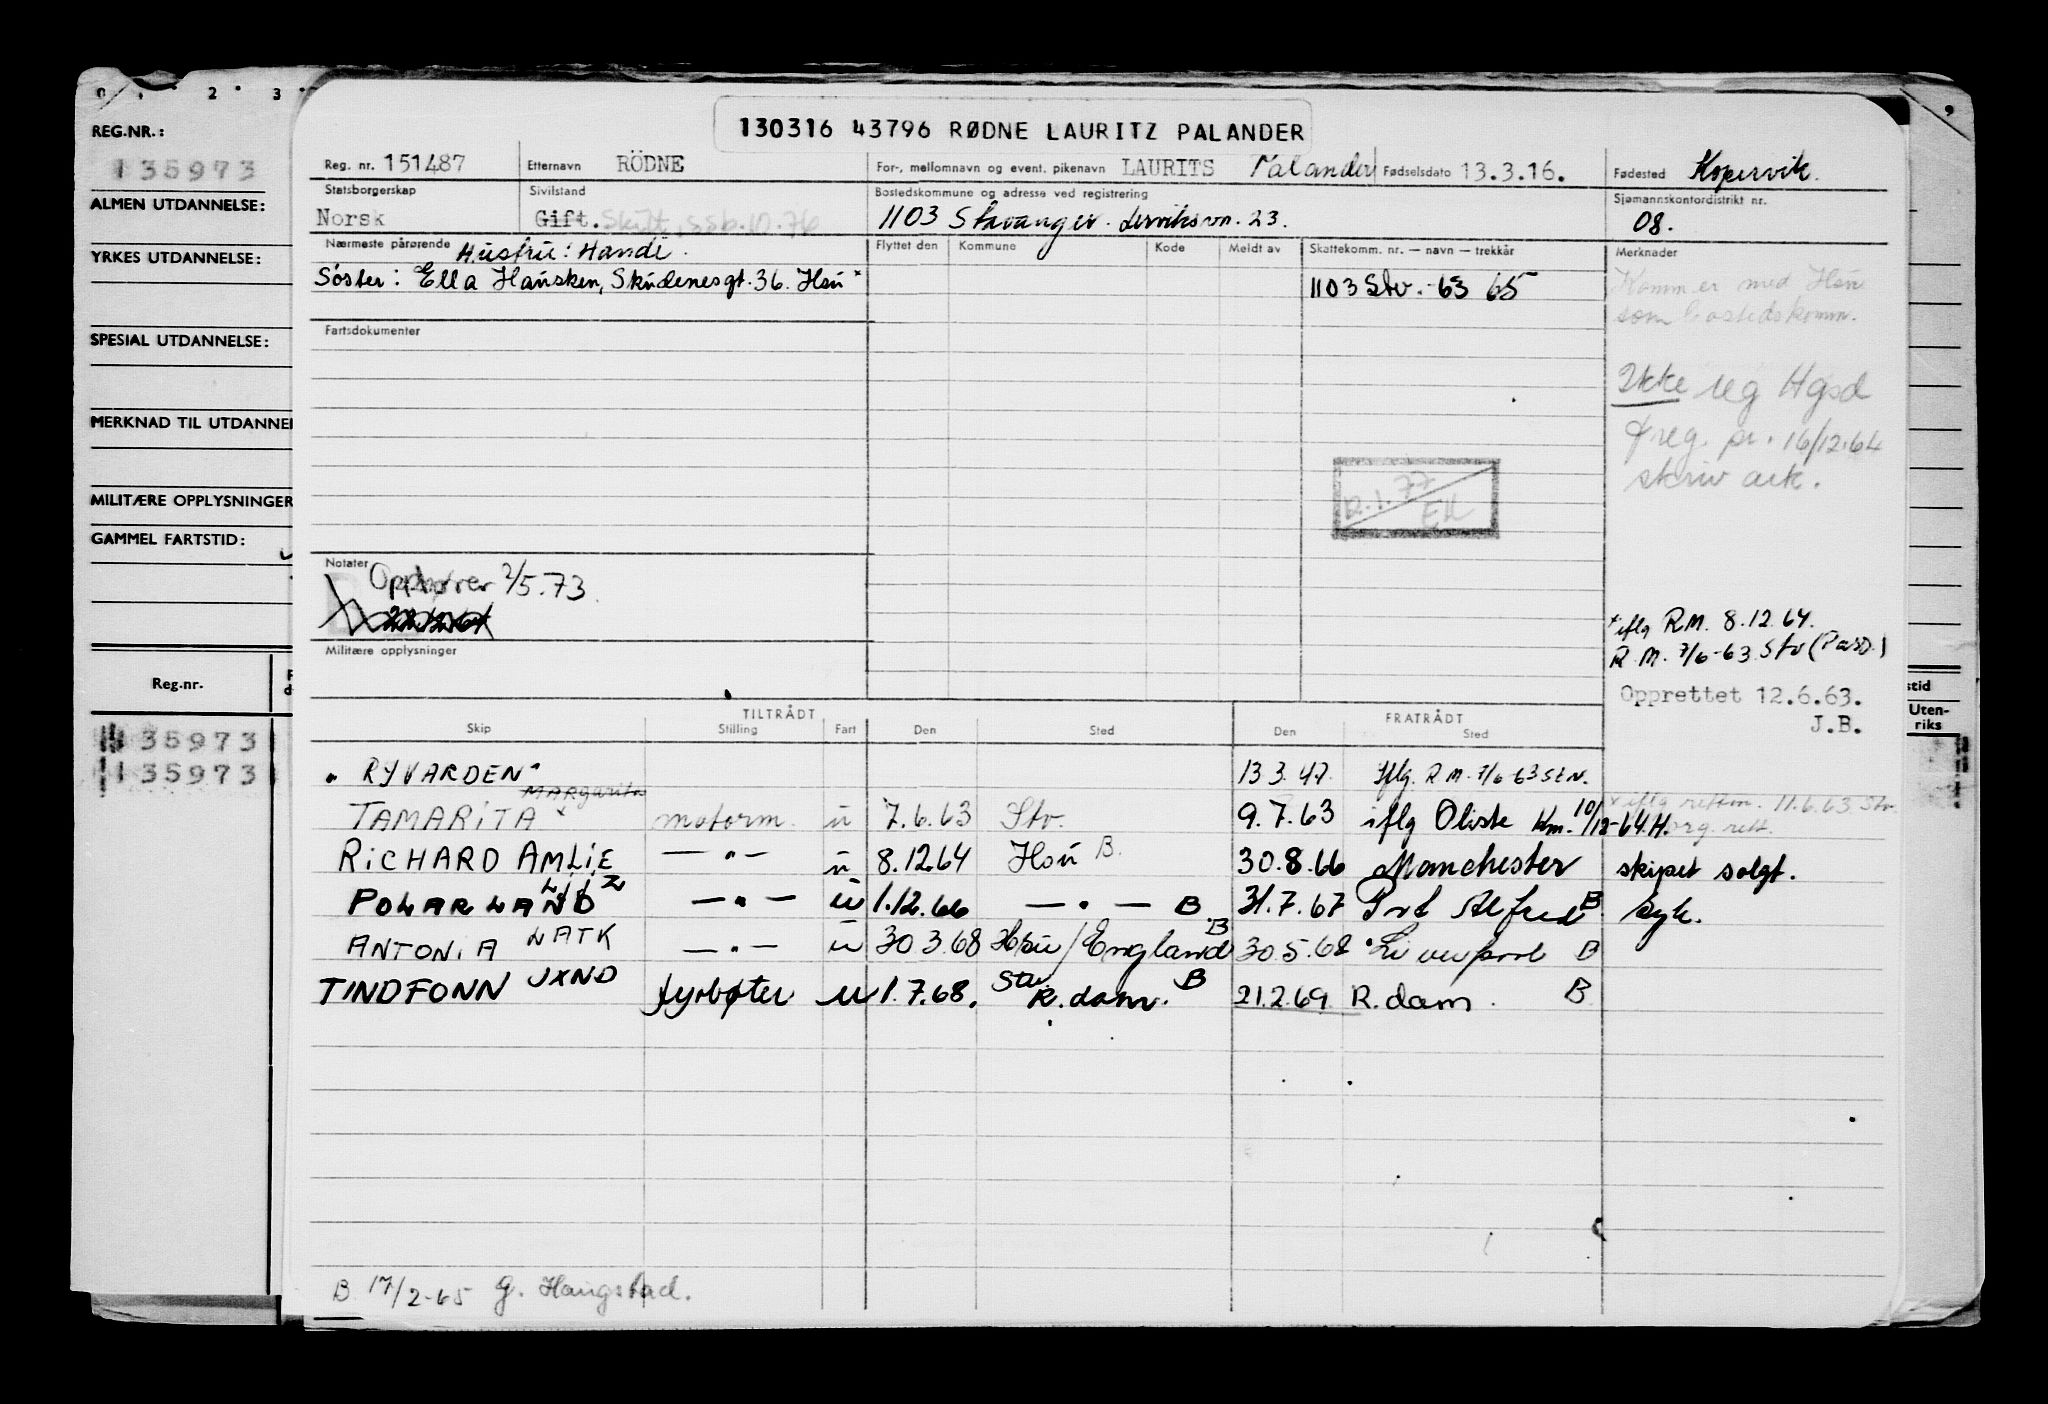 0 . 2 . 3 .
9
REG.NR.:
135973
ALMEN UTDANNELSE:
YRKES UTDANNELSE:
SPESIAL UTDANNELSE:
MERKNAD TIL UTDANNEL
MILITÆRE OPPLYSNINGER
GAMMEL FARTSTID:
Reg.nr.
35973
135973
130316 43796 RØDNE LAURITZ PALANDER
Reg. nr. 151487 Etternavn RÖDNE For-, mellomnavn og event. pikenavn LAURITS Palander Fødselsdato 13.3.16. Fødested Kopervik.
Statsborgerskap Sivilstand Bostedskommune og adresse ved registrering Sjømannskontordistrikt nr.
Norsk Gift. Skilt, SSb.10.76 1103 Stavanger. 23. 08.
Nærmeste pårørende Hustru: Handi. Flyttet den Kommune Kode Meldt av Skattekomm. nr. — navn — trekkår Merknader
Søster: Ella Hausken, Skudenesgt. 36. Hsu x 1103 Stv. -63 65
Komm er med Hsu
som bostedskomm.
Fartsdokumenter
Ikke reg Hgsd
freg. pr. 16/12.64
skriv ark.
12.1.77
EH
Notater Opphører 2/5.73.
Militære opplysninger
x iflg R.M. 8.12.64.
R.M. 7/6-63 Stv (Pasd.)
Opprettet 12.6.63.
J.B.
TILTRÅDT FRATRÅDT
Skip Stilling Fart Den Sted Den Sted
stid
Uten-
riks
"RYVARDEN" 13.3.47. Iflg. R.M. 7/6-63 Stv.
Margarita
TAMARITA x motorm. u 7.6.63 Stv. 9.7.63 iflg Oliste Km. 10/12-64.H. x iflg rettm. 11.6.63 Stv
org. rett.
RICHARD AMLIE — " — u 8.12.64 Hsu B. 30.8.66 Manchester skipet solgt.
POLARLAND LJLZ — " — u 1.12.66 — " — B 31.7.67 Port Alfred B. syk.
ANTONIA LATK — " — u 30.3.68 Hsu/England B 30.5.68 Liverpool B
TINDFONN JXND fyrbøter u 1.7.68. Stv. R.dam. B 21.2.69 R.dam. B
B 17/2-65 G. Haugstad.